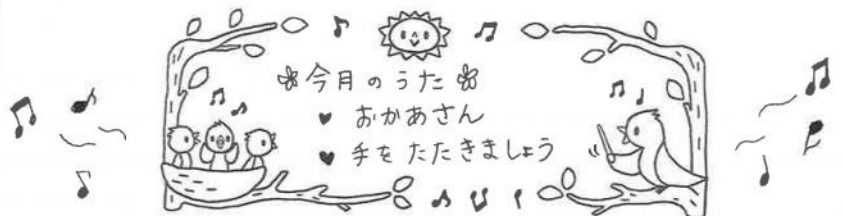 今月のうた
♥ おかあさん
♥ 手をたたきましょう